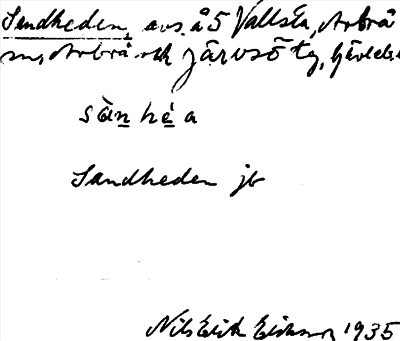 Sandheden, avs. å 5 Vallsta, Arbrå
sn, Arbrå och Järvsö tg, Gävlebs
sàn hé a
Sandheden jb
Nils Erik Eriksson 1935